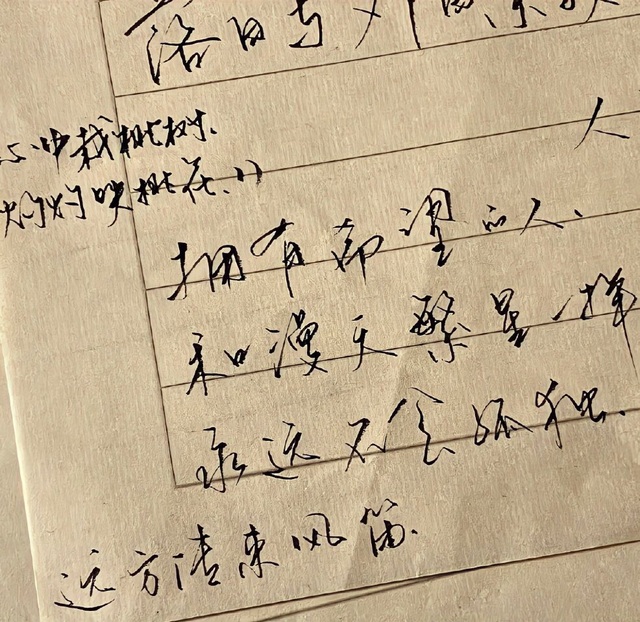 落日与
人
心中栽桃树.
灼灼桃花.
拥有希望的人、
和漫天繁星一样
永远不会孤独.
远方传来风笛.